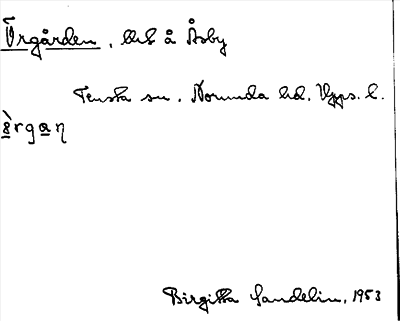 Örgården, bbl å Åsby
Tensta sn. Norunda hd. Upps. l.
Birgitta Sandelin, 1953